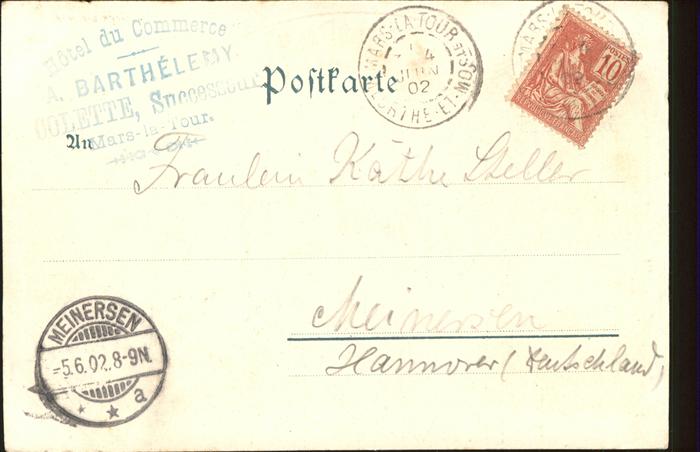 Hôtel du Commerce
A. BARTHÉLEMY
COLETTE, Successeur
Mars-la-Tour.
Postkarte
MARS-LA-TOUR
JUIN
02
MEURTHE-ET-MOSELLE
MARS-LA-TOUR
02
POSTES
10
An
Fräulein Käthe Steller
Meinersen
Hannover (Deutschland)
MEINERSEN
-5.6.02.8-9N.
* * a